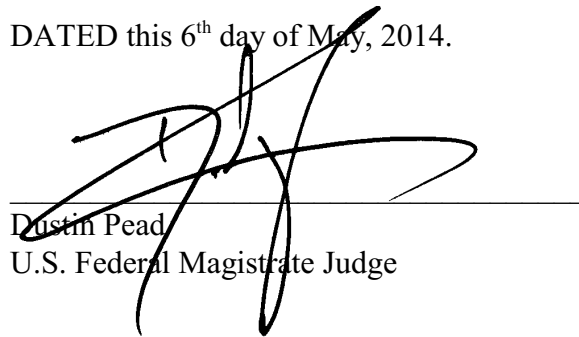 DATED this 6th day of May, 2014.
Dustin Pead
U.S. Federal Magistrate Judge